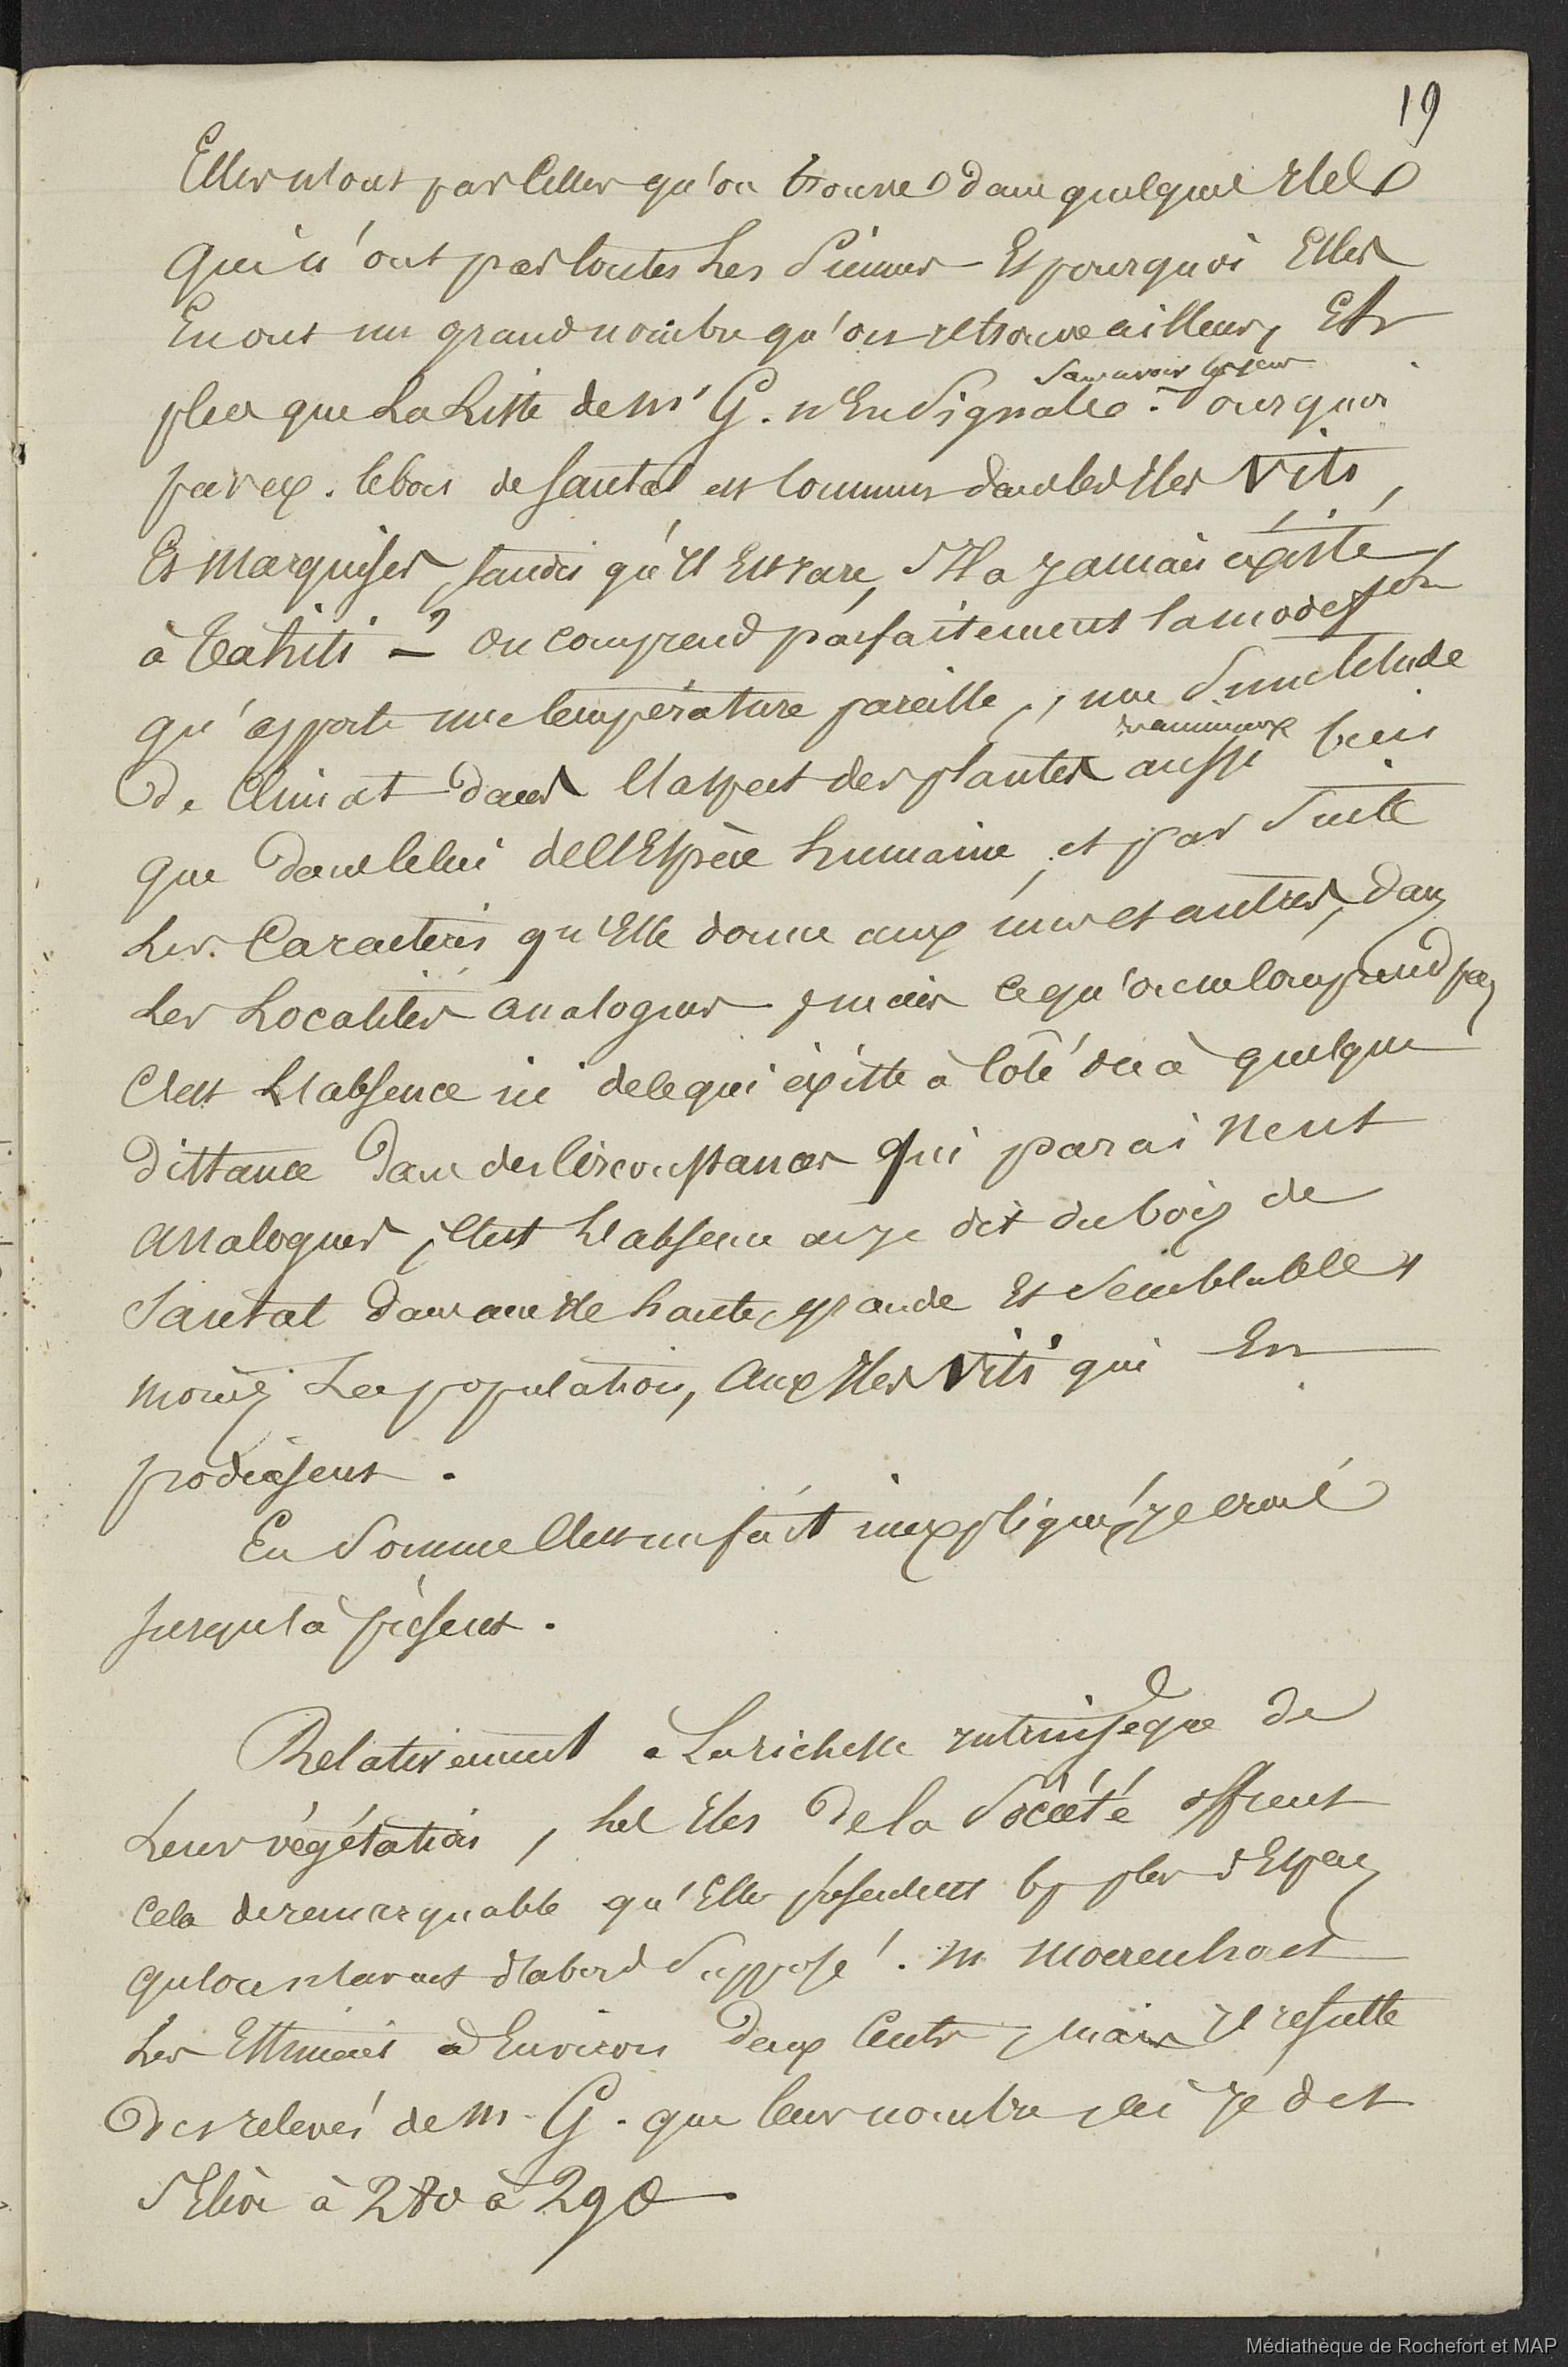 19
Elles n'ont pas celles qu'on trouve dans quelques Iles
qui n'ont pas toutes les siennes et pourquoi Elles
En ont un grand nombre qu'on retrouve ailleurs, Et
sans avoir
plus que La Liste de Mr G. n'En Signale. Pourquoi
par ex. le bois de Santal est commun dans les Iles Viti,
Et Marquises, tandis qu'il Est rare, s'Il a jamais existé,
à Tahiti - ? On comprend parfaitement la modeson
qu'apporte une température pareille, une Similitude
animaux
De Climat dans l'aspect des plantes aussi bien
que dans celui de l'Espèce humaine, et par Suite
Les Caractères qu'Elle donne aux unes et autres, dans
Les Localités analogues, mais ce qu'on ne comprend pas
C'est L'absence ici de ce qui existe à côté ou à quelque
distance dans des circonstances qui paraissent
analogues, C'est L'absence ai-je dit du bois de
Santal dans une Ile haute, grande Et Semblable,
moins La population, aux Iles Viti qui En
produisent.
En Somme C'est un fait inexpliqué, je crois
jusqu'à présent.
Relativement à La richesse intrinsèque de
Leur végétation, les Iles De la Société offrent
cela de remarquable qu'Elles présentent bp plus d'Espèces
qu'on n'avait d'abord Supposé. M Moerenhout
Les Estimait à Environ Deux Cents, mais il résulte
Des relevés de M. G. que leur nombre, ai-je dit
s'Elève à 280 à 290